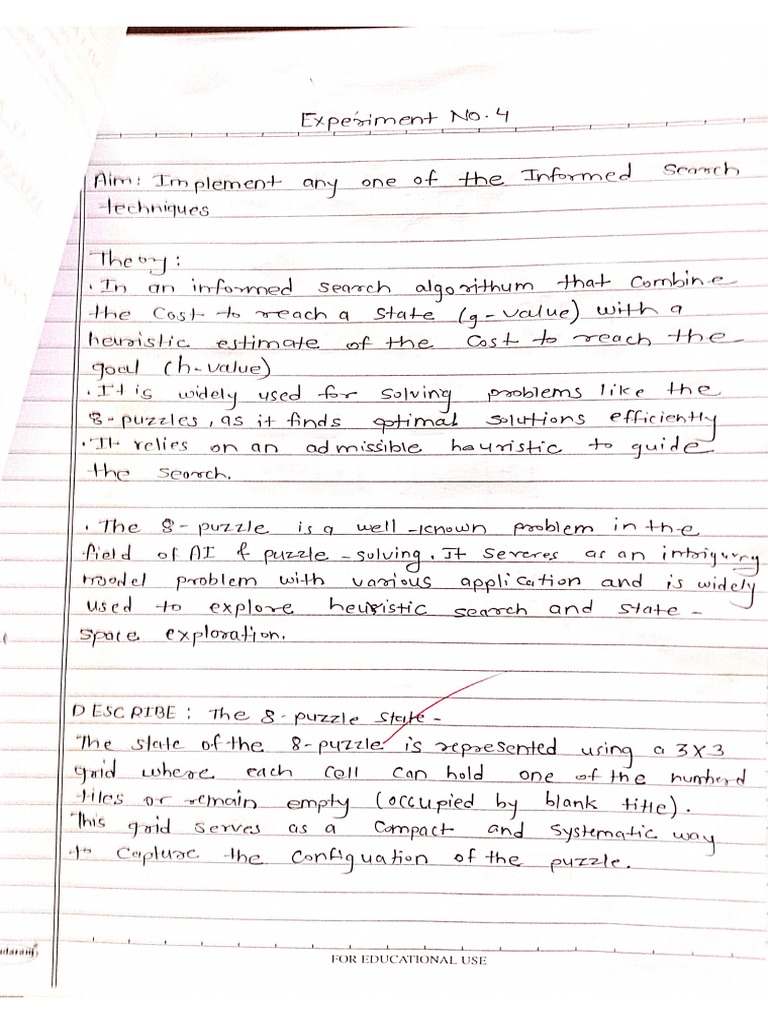 Experiment No. 4
Aim: Implement any one of the Informed Search
techniques
Theory:
. In an informed search algorithum that Combine
the Cost to reach a State (g-value) with a
heuristic estimate of the Cost to reach the
goal (h-value)
. It is widely used for solving problems like the
8-puzzles, as it finds optimal solutions efficiently
. It relies on an admissible heuristic to guide
the search.
. The 8-puzzle is a well-known problem in the
field of AI & puzzle-solving. It severes as an intriguing
model problem with various application and is widely
used to explore heuristic search and state-
space exploration.
DESCRIBE: The 8-puzzle state-
The state of the 8-puzzle is represented using a 3X3
grid where each cell can hold one of the numberd
tiles or remain empty (occupied by blank title).
This grid serves as a compact and systematic way
to capture the configuation of the puzzle.
FOR EDUCATIONAL USE